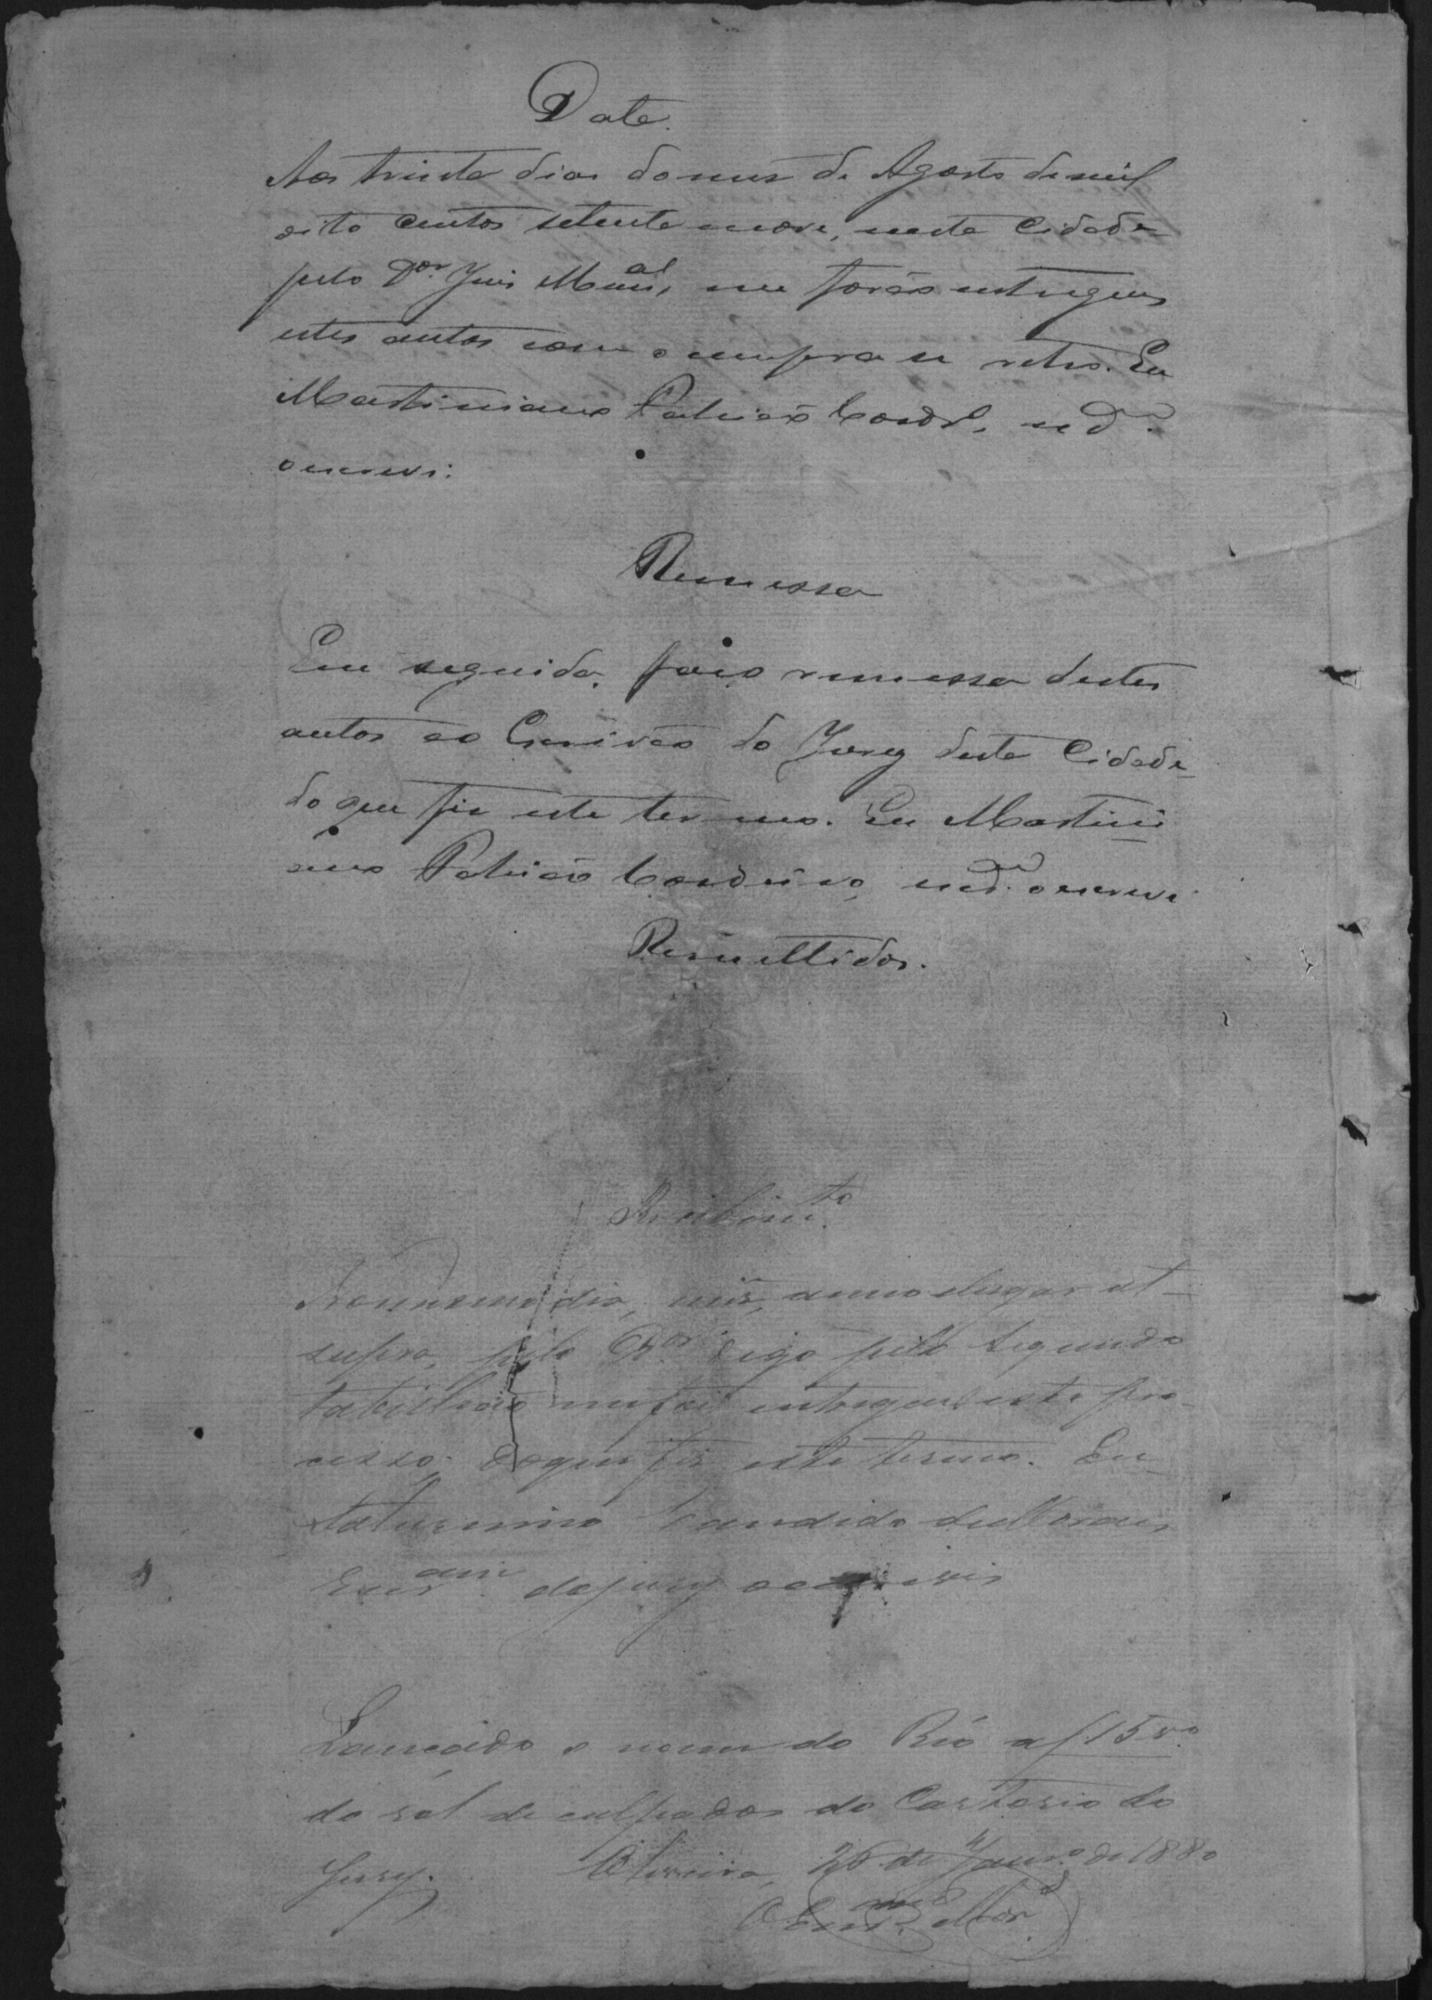 Data.
Aos trinta dias do mes de Agosto de mil
oito centos setenta e nove, nesta Cidade
pelo Dor. Juis Munal, me forão entregues
estes autos com o cumpra se retro. Eu
Martiniano Patricio
o escrevi.
Remessa
Em seguida, faço remessa destes
autos ao Escrivão do Jury desta Cidade
do que fiz este termo. Eu Martini
ano Patricio o escrevi
Remettidos.
Recibimto.
No mesmo dia, mês, anno e lugar ut
supra, pelo Dor. digo pelo segundo
tabellião me foi entregue este pro
cesso. Do que fiz este termo. Eu
Saturnino Candido de Moraes
do jury o escrivi
Lançado o nome do Rio a f. 15 vo.
do rol de culpados do Cartorio do
Jury. Oliveira, 26 de Janro. de 1880